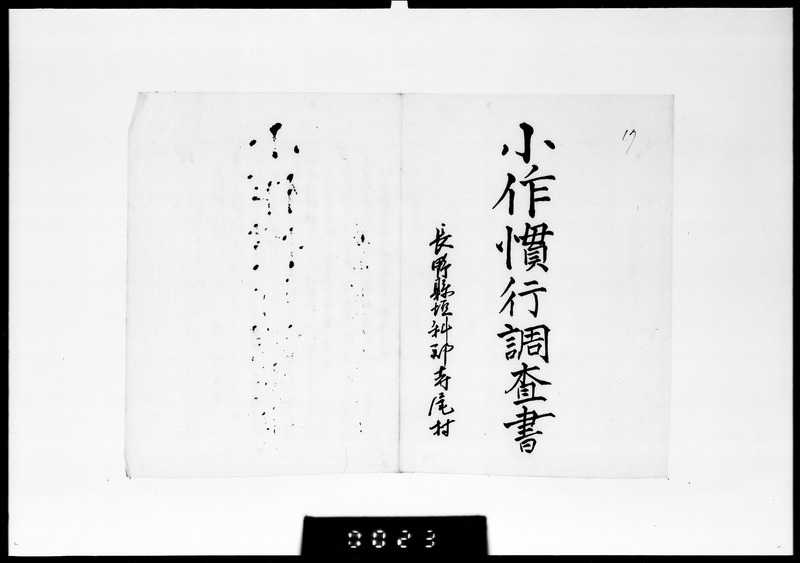 17
小作慣行調査書
長野縣埴科郡寺尾村
0023